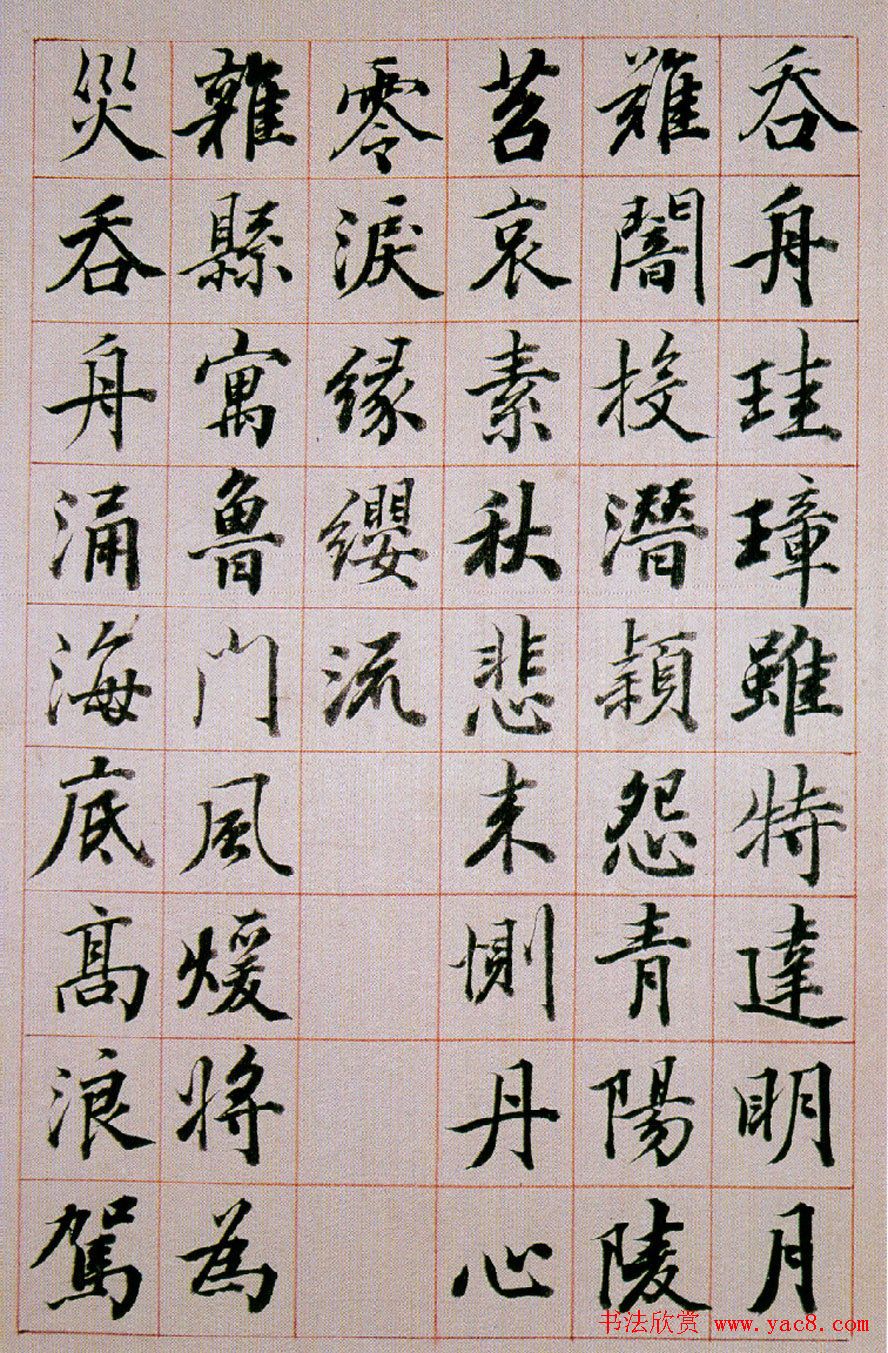 吞舟珪璋雖特達明月
難闇投潛穎怨青陽陵
苕哀素秋悲来惻丹心
零淚緣纓流
雜縣寓魯門風煖將為
災吞舟涌海底髙浪駕
书法欣赏 www.yac8.com